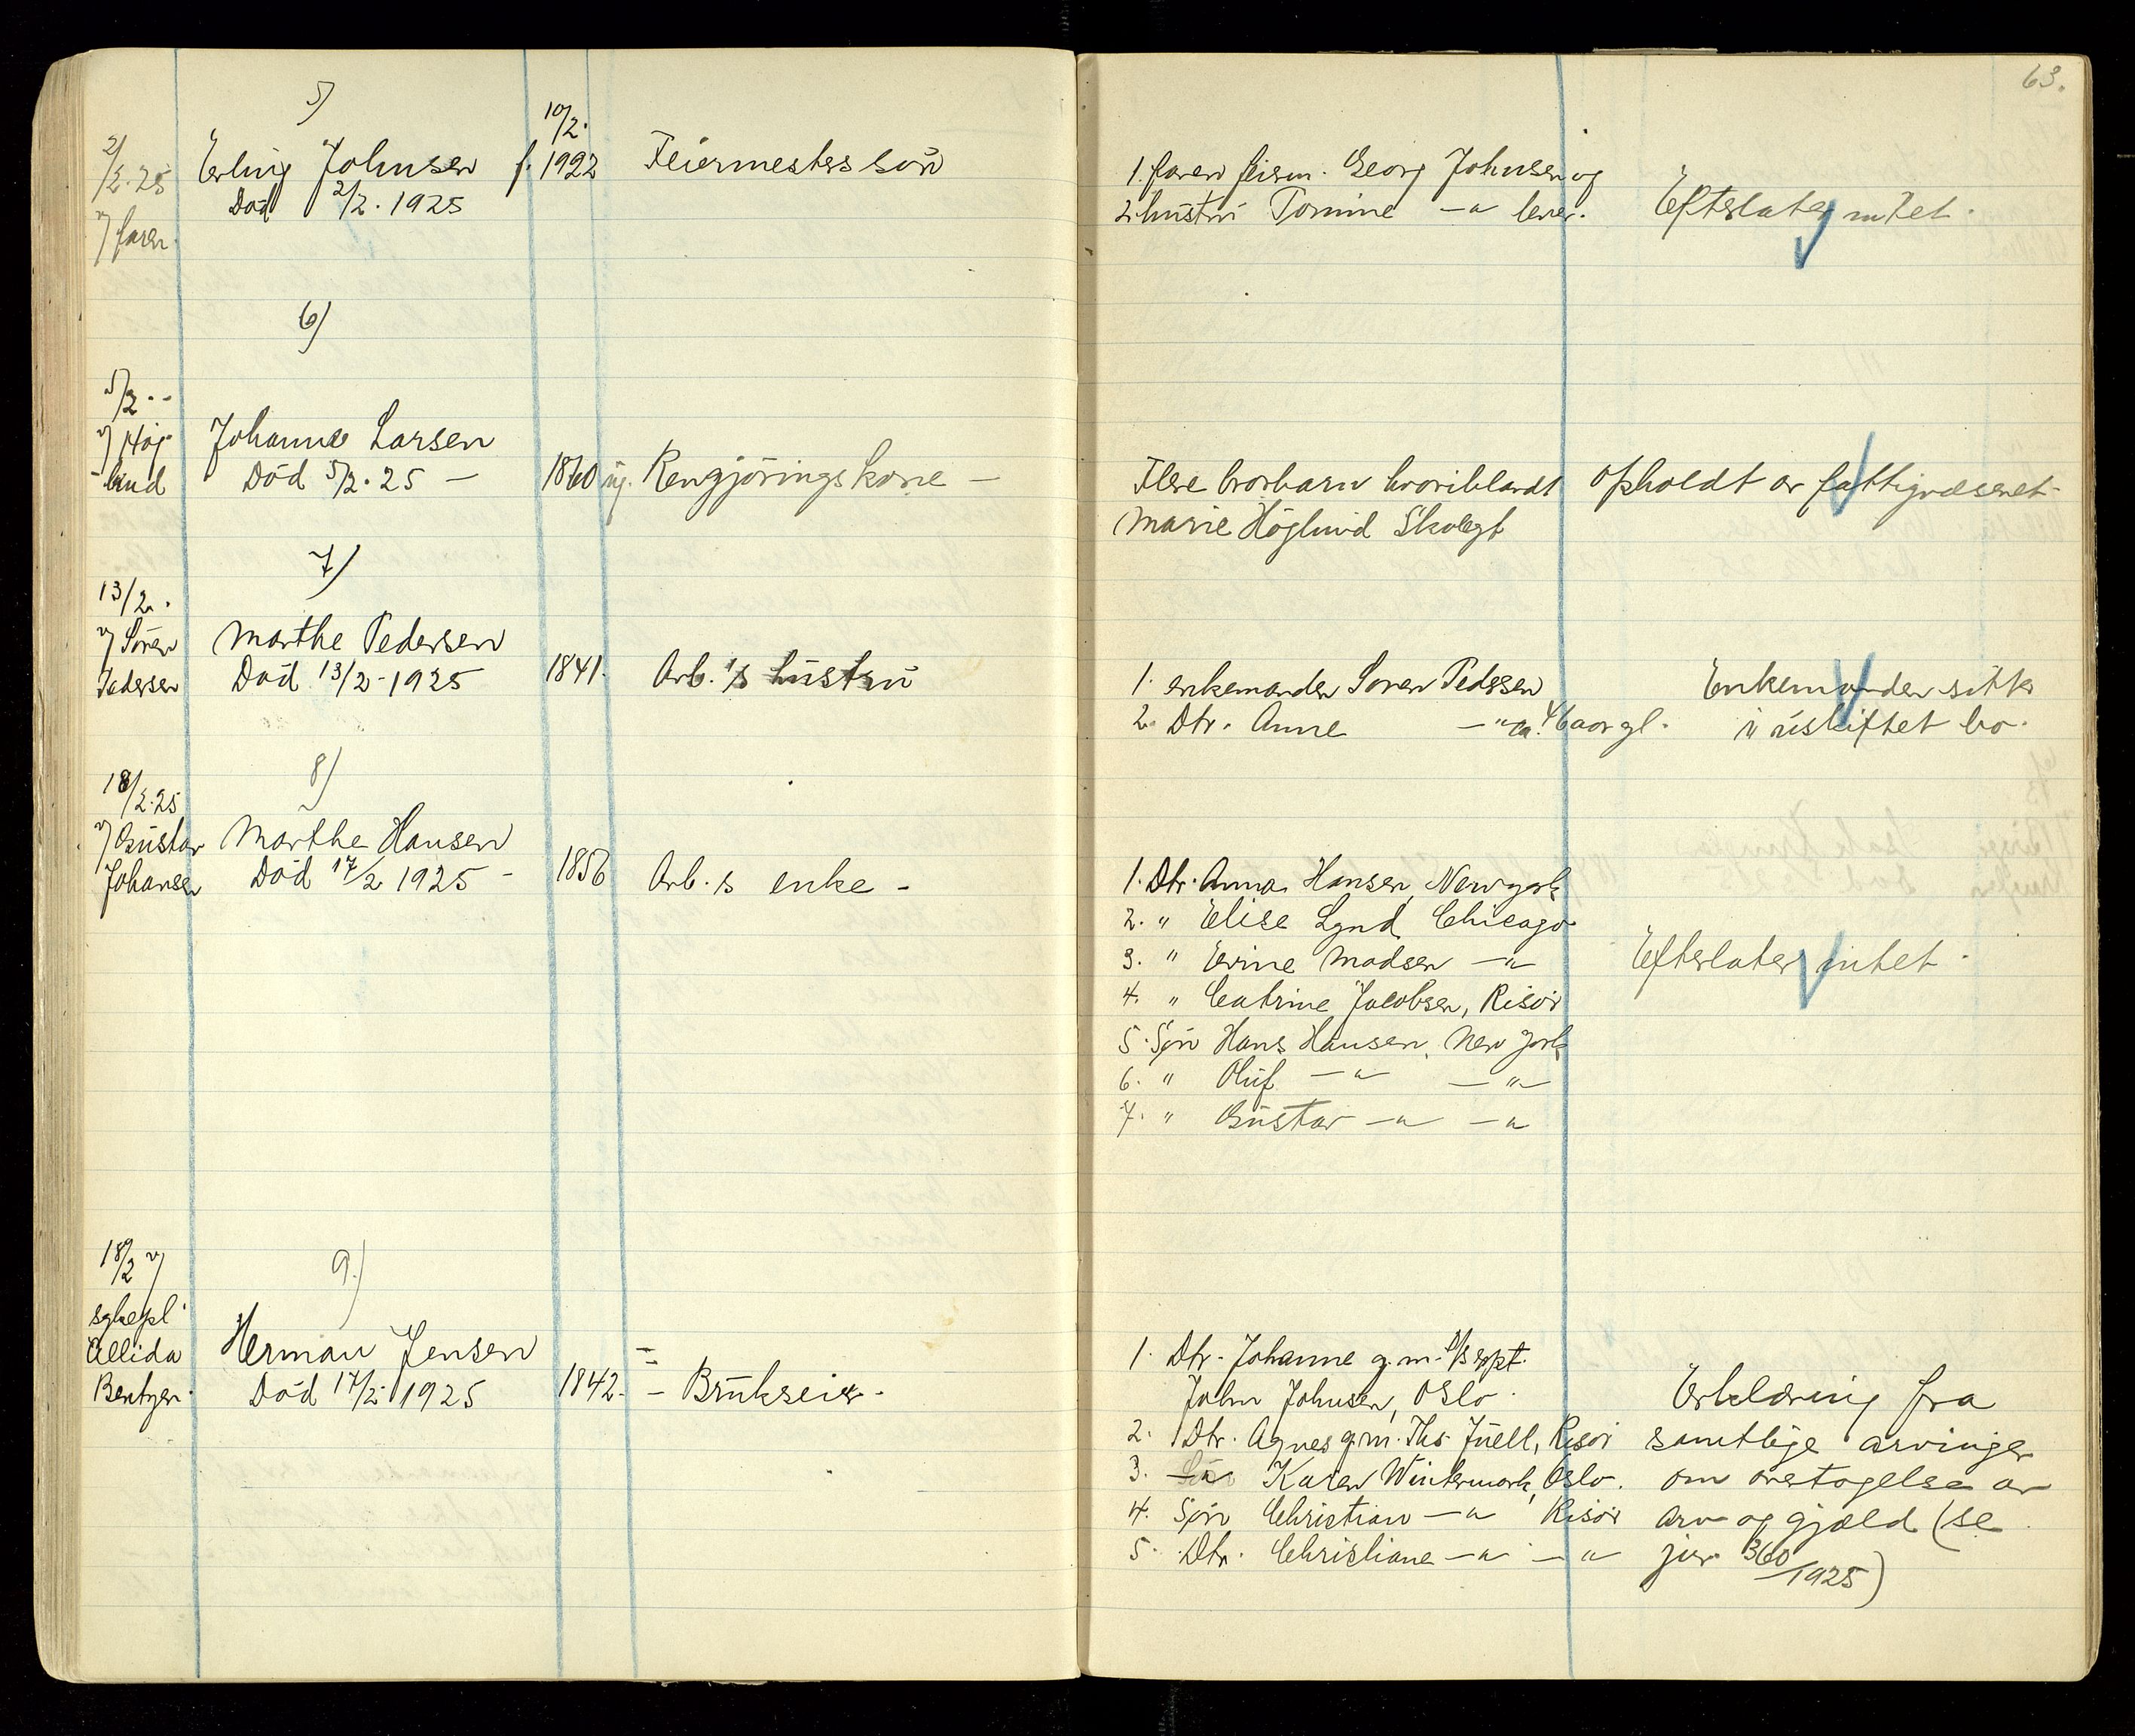 63.
5)
2/2.25
v/ faren
Erling Johnsen f. 10/2. 1922 Feiermesters sön
Död 2/2. 1925
1. faren feierm. Georg Johnsen og
2. hustru Tomine —"— lever.
Efterlater intet.
6)
5/2 --
v/ Hög-
lund
Johanne Larsen
Död 5/2. 25 — 1860 ug. Rengjöringskone —
Flere brorbarn hvoriblandt
Marie Höglund Skolegt
Opholdt av fattigvæsenet
7)
13/2.
v/ Sören
Pedersen
Marthe Pedersen
Död 13/2 - 1925 1841. Arb.'s hustru
1. enkemanden Sören Pedersen
2. Dtr. Anne —"— ca. 46 aar gl.
Enkemanden sitter
i uskiftet bo.
8)
18/2.25
v/ Gustav
Johansen
Marthe Hansen
Död 17/2 1925 - 1856 Arb.s enke -
1. Dtr. Anna Hansen, Newyork
2. " Elise Lynd, Chicago
3. " Erine Madsen —"—
4. " Catrine Jacobsen, Risör
5. Sön Hans Hansen, New York
6. " Oluf —"— —"—
7. " Gustav —"— —"—
Efterlater intet.
9.)
18/2 v/
sykepl.
Ellida
Bentzen.
Herman Jensen
Död 17/2 1925 1842. - Brukseier.
1. Dtr. Johanne g.m.
John Johnsen, Oslo.
2. Dtr. Agnes g.m. Ths. Juell, Risör
3. —"— Karen Wintermark, Oslo.
4. Sön Christian —"— Risör
5. Dtr. Christiane —"— —"—
Erklæring fra
samtlige arvinger
om overtagelse av
arv og gjæld (se
jur. 360/1925)